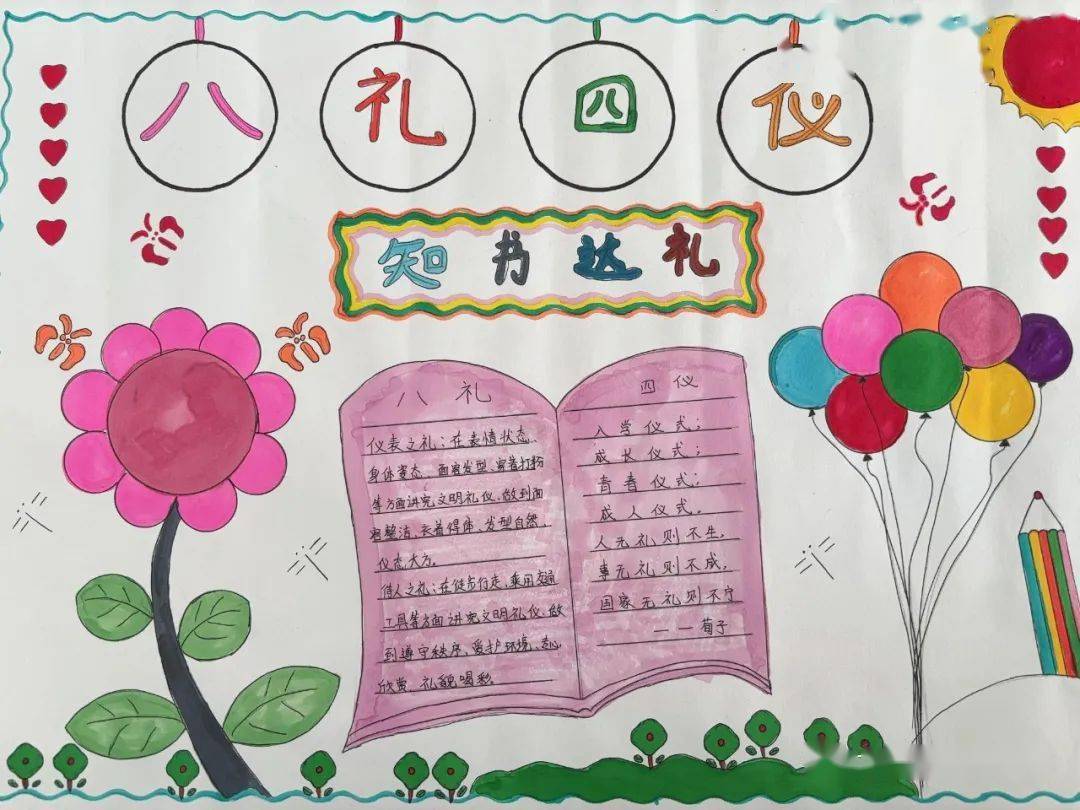 八礼四仪
知书达礼
八礼
仪表之礼:在表情状态、
身体姿态、面容发型、穿着打扮
等方面讲究文明礼仪,做到面
容整洁、衣着得体、发型自然、
仪态大方。
待人之礼:在徒步行走、乘用交通
工具等方面讲究文明礼仪,做
到遵守秩序、爱护环境、专心
欣赏、礼貌喝彩。
四仪
入学仪式;
成长仪式;
青春仪式;
成人仪式。
人无礼则不生,
事无礼则不成,
国家无礼则不宁
——荀子